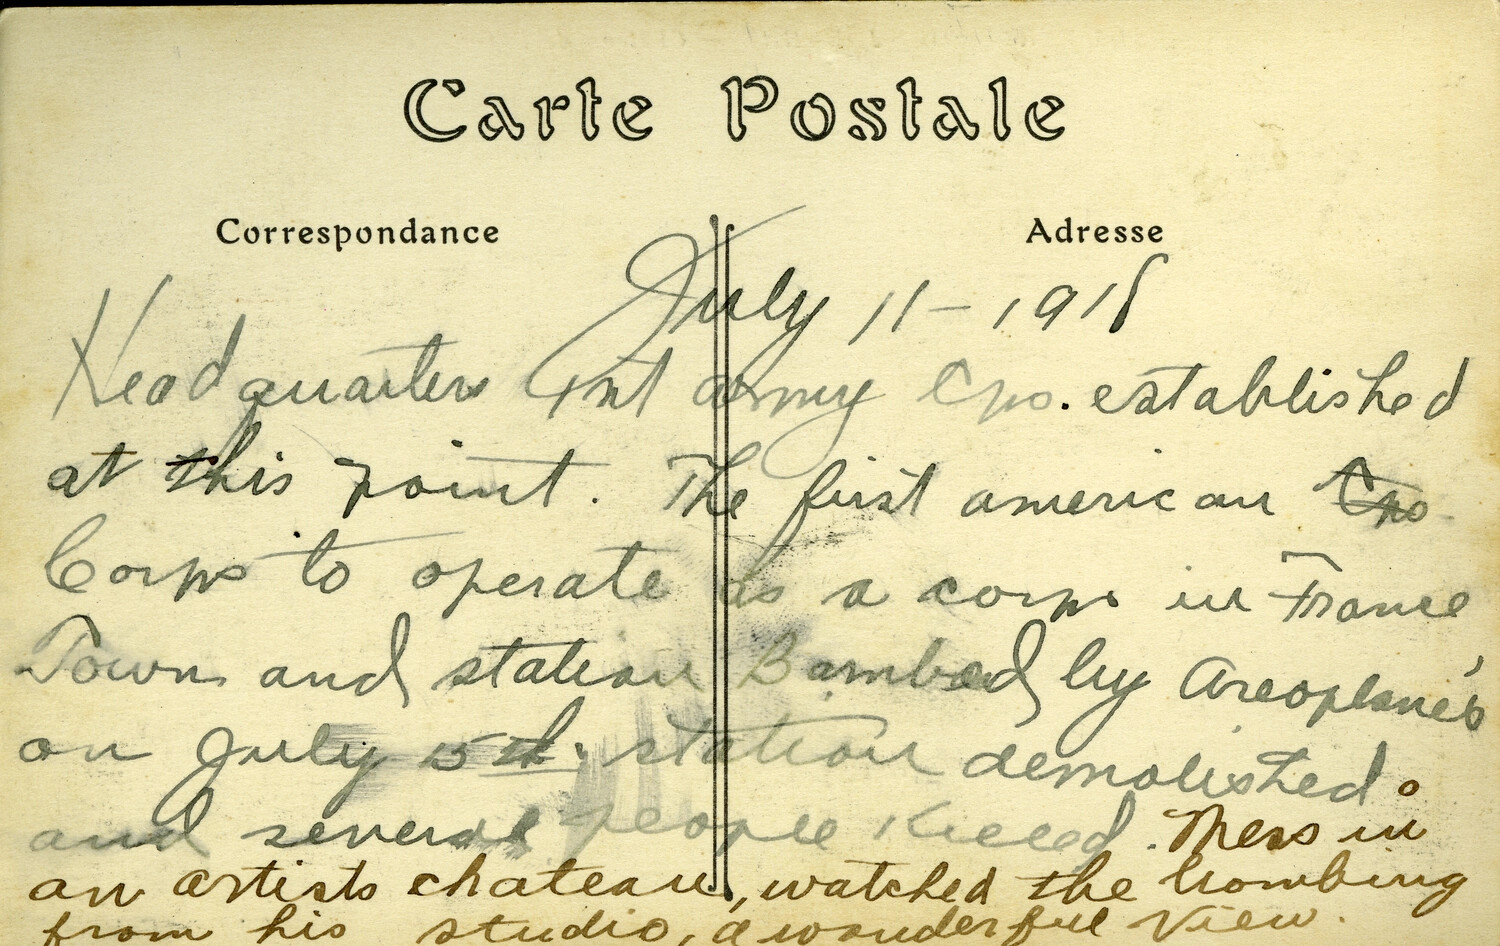 Carte Postale
Correspondance
Adresse
July 11-1918
Headquarters 1st army Cps. established
at this point. The first american Cps
Corps to operate as a corps in France
Town and station Bombed by Areoplane's
on July 15th. station demolished
and several people Killed. Mess in
an artists chateau, watched the bombing
from his studio, a wonderful view.